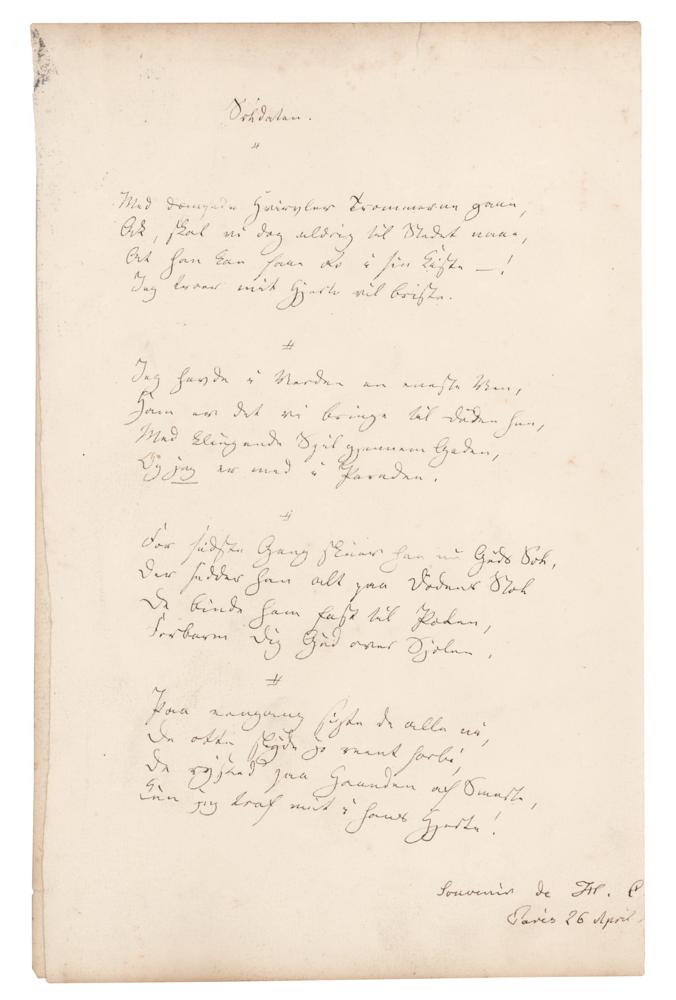 Soldaten.
Med dæmpede Hvirvler Trommerne gaae,
Ak, skal vi dog aldrig til Stedet naae,
At han kan faae Ro i sin Kiste —!
Jeg troer mit Hjerte vil briste.
Jeg havde i Verden en eneste Ven,
Ham er det vi bringe til Døden hen,
Med klingende Spil gjennem Gaden,
Og jeg er med i Paraden.
For sidste Gang skuer han nu Guds Sol,
Der sidder han alt paa Dødens Stol
De binde ham fast til Pælen,
Forbarm Dig Gud over Sjælen,
Paa eengang sigte de alle ni,
De otte skyde jo reent forbi,
De rysted paa Haanden af Smerte,
Kun jeg traf midt i hans Hjerte!
Souvenir de H. C
Paris 26 April